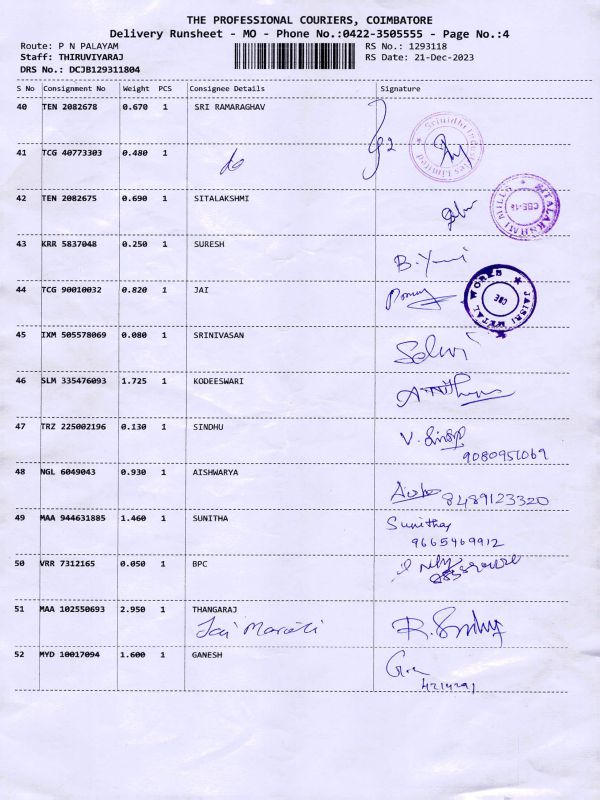 THE PROFESSIONAL COURIERS, COIMBATORE
Delivery Runsheet - MO - Phone No.:0422-3505555 - Page No.:4
Route: P N PALAYAM RS No.: 1293118
Staff: THIRUVIYARAJ RS Date: 21-Dec-2023
DRS No.: DCJB129311804
S No Consignment No Weight PCS Consignee Details Signature
40 TEN 2082678 0.670 1 SRI RAMARAGHAV
41 TCG 40773303 0.480 1 do
42 TEN 2082675 0.690 1 SITALAKSHMI
SITALAKSHMI MILLS
43 KRR 5837048 0.250 1 SURESH
44 TCG 90010032 0.820 1 JAI
JAISRI METAL WORKS CBE
45 IXM 505578069 0.080 1 SRINIVASAN Selvi
46 SLM 335476093 1.725 1 KODEESWARI
47 TRZ 225002196 0.130 1 SINDHU
9080951069
48 NGL 6049043 0.930 1 AISHWARYA
8489123320
49 MAA 944631885 1.460 1 SUNITHA Sunitha
9665469912
50 VRR 7312165 0.050 1 BPC
51 MAA 102550693 2.950 1 THANGARAJ
Jai Maruti
52 MYD 10017094 1.600 1 GANESH